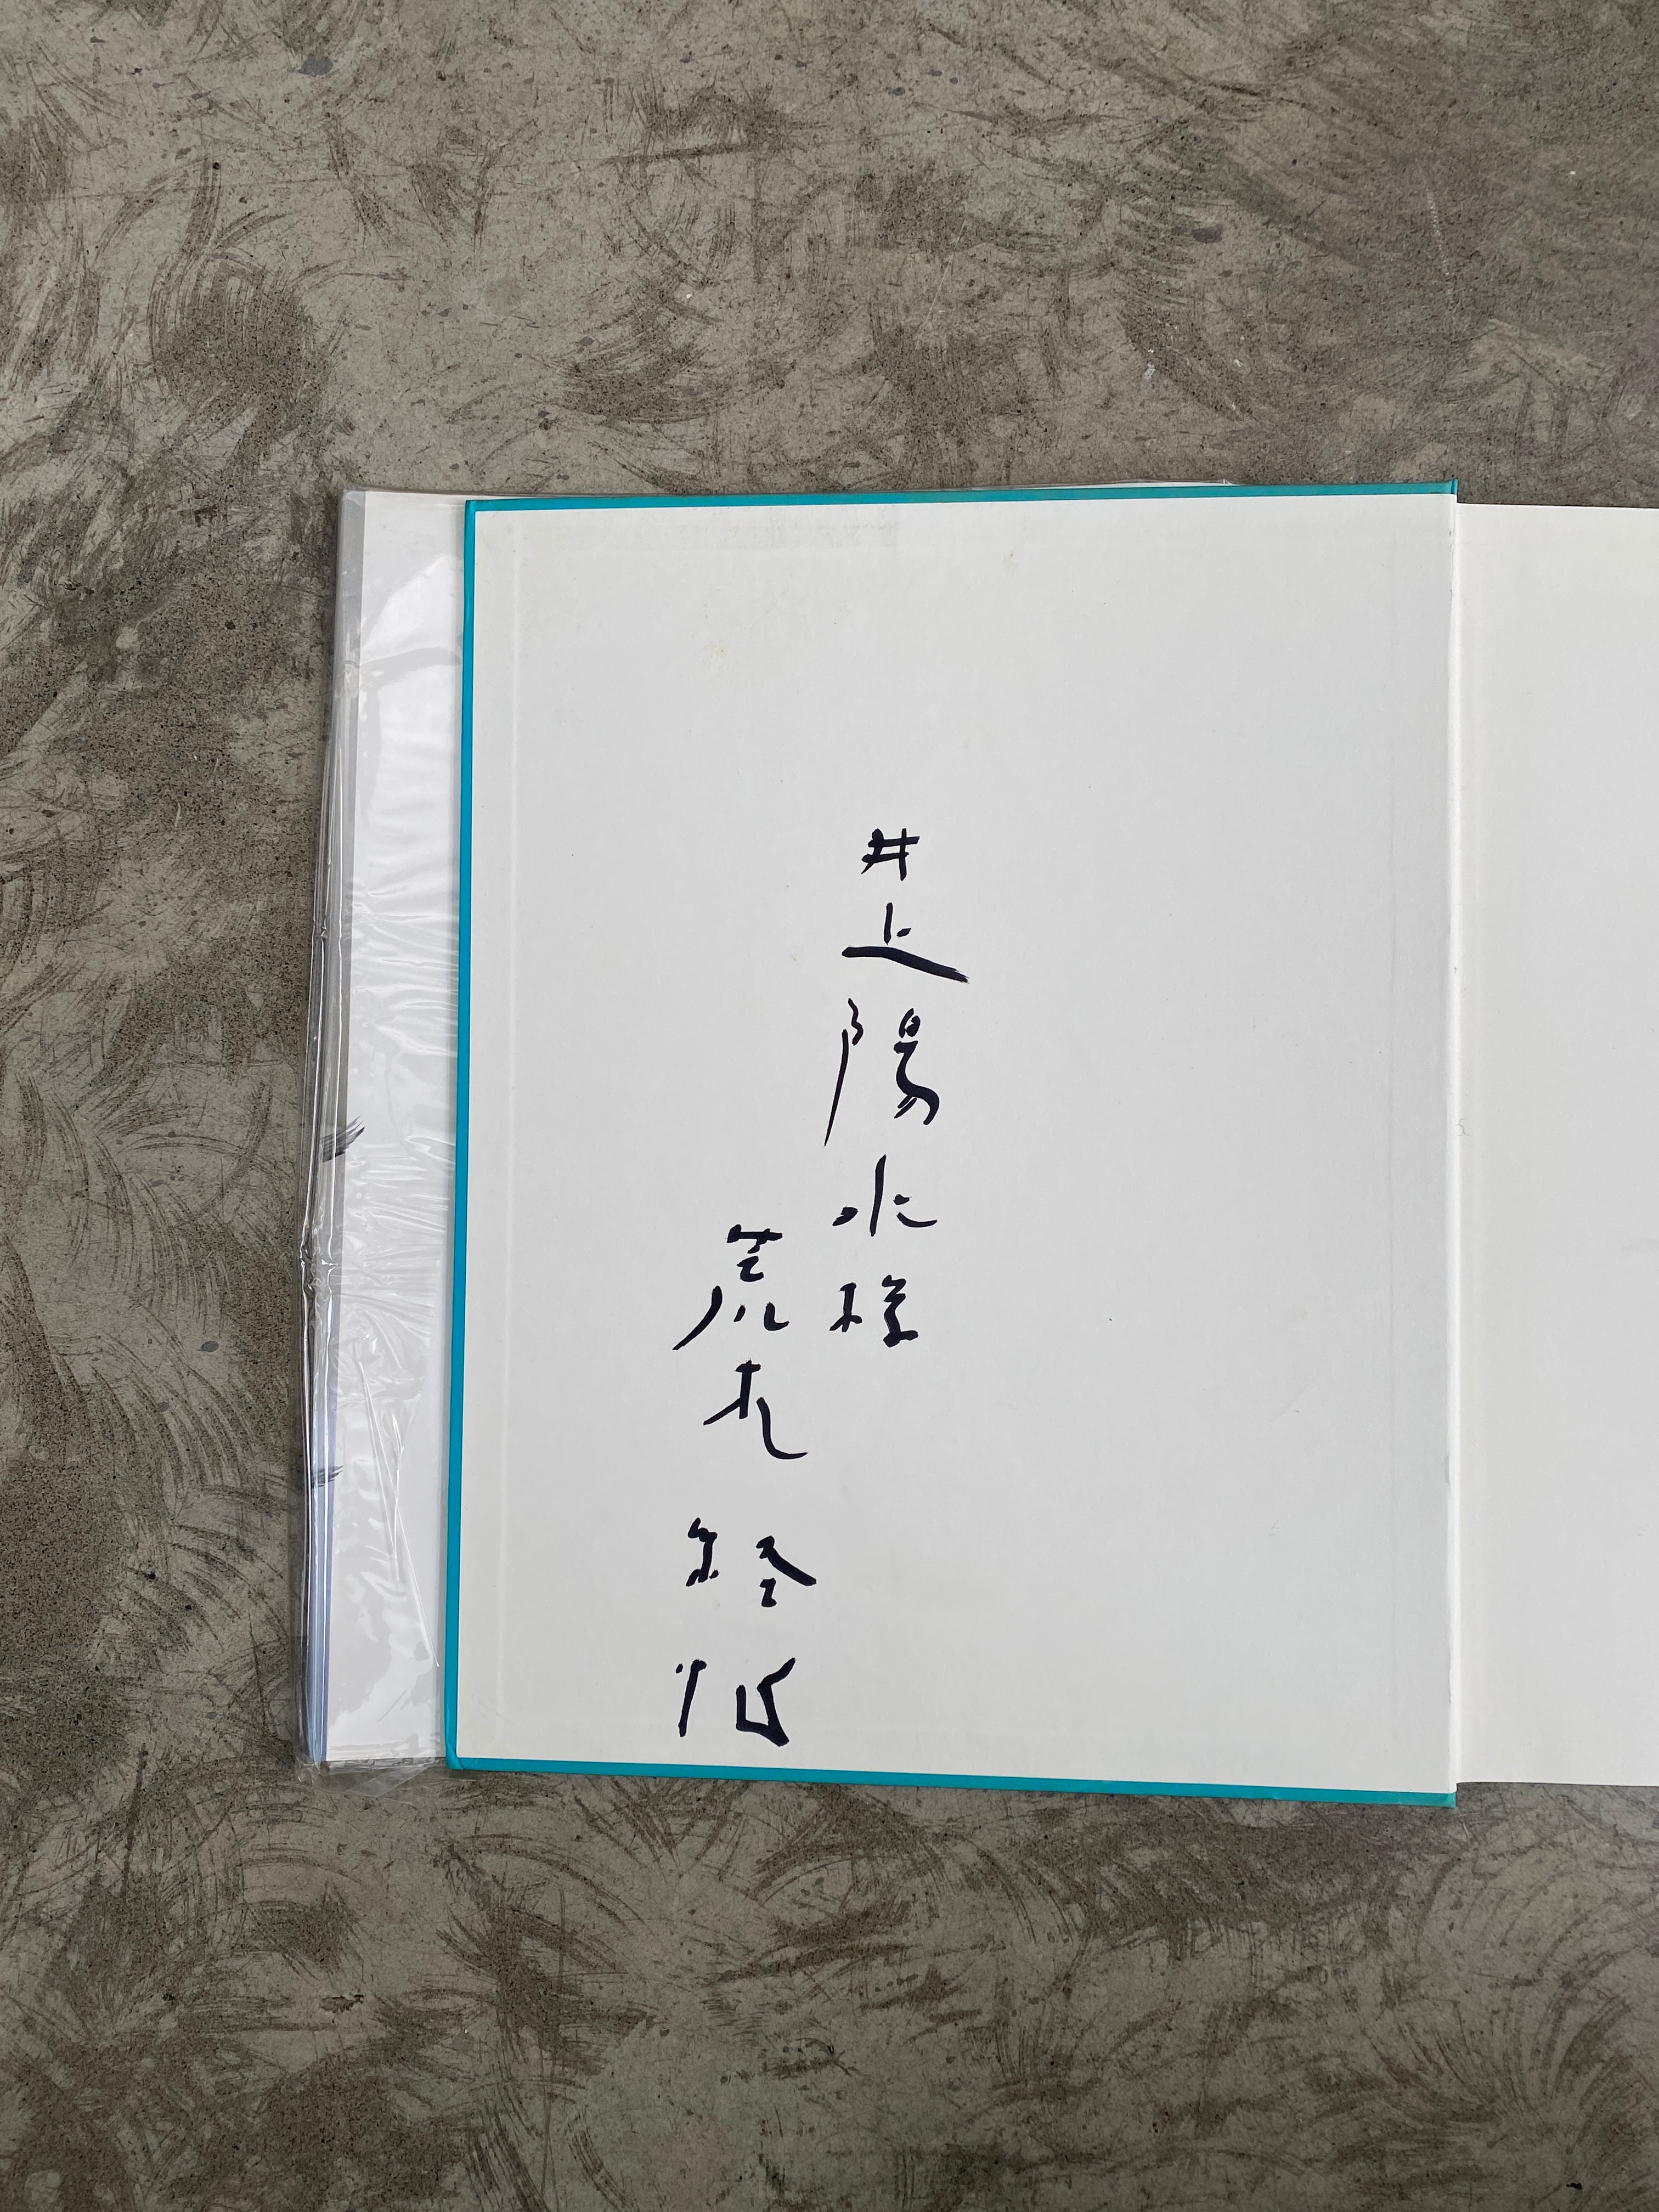 井上陽水様
荒木経惟